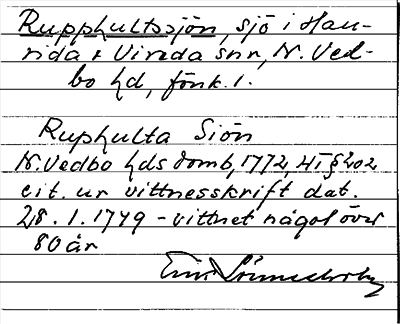 Rupphultssjön, sjö i Hau-
rida & Vireda snr, N. Ved-
bo hd, Jönk. l.
Ruphulta Siön
N. Vedbo hds domb, 1772, 4/5 § 202
cit. ur vittnesskrift dat.
28.1.1749 - vittnet något över
80 år